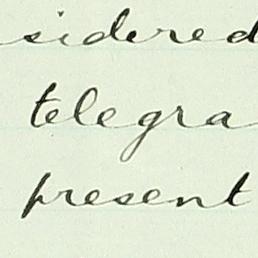 sidered
telegra
present